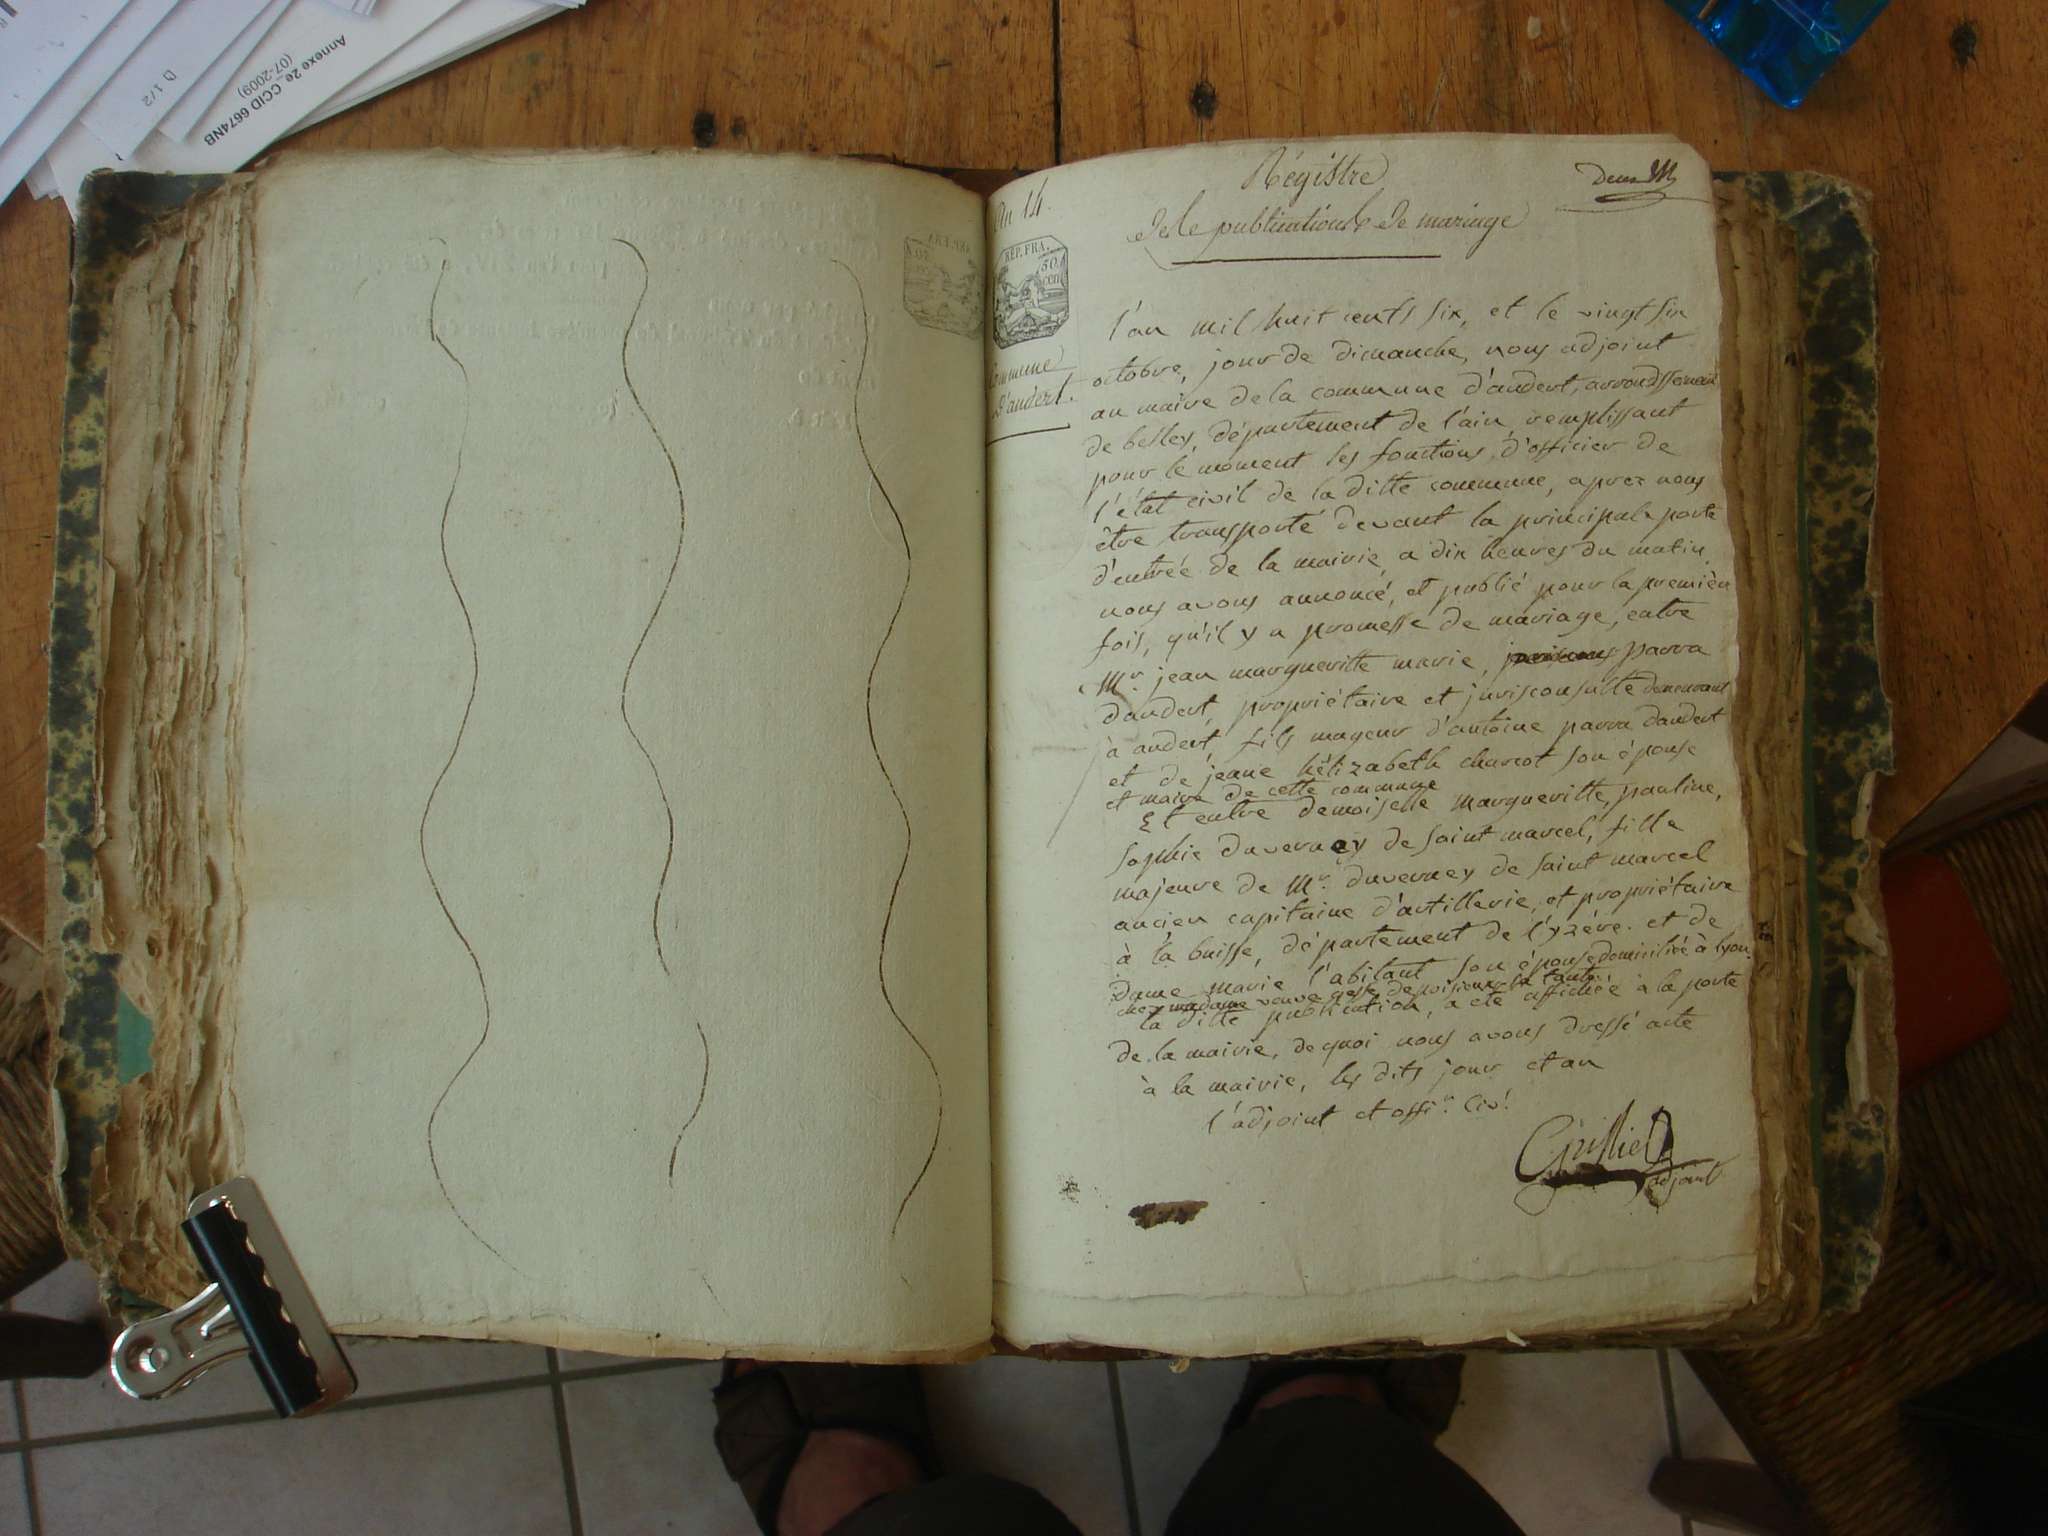 Annexe 2e_CCID 6674NB
(07-2009)
D 1/2
An 14.
RÉP. FRA.
50
cen
Commune
D'andert.
Régistre
Deux
Des publications De mariage
l'an mil huit cents six, et le vingt six
octobre, jour de dimanche, nous adjoint
au maire de la commune d'andert, arrondissement
de belley, département de l'ain, remplissant
pour le moment les fonctions d'officier de
l'état civil de la ditte commune, aprez nous
être transporté devant la principale porte
d'entrée de la mairie, a dix heures du matin
nous avons annoncé, et publié pour la premièr
fois, qu'il y a promesse de mariage, entre
Mr. jean margueritte marie, parra
dandert, propriétaire et jurisconsulte demeurant
à andert, fils mageur d'antoine parra dandert
et de jeane hélizabeth charcot son épouse
et maire de cette commune
Et entre demoiselle margueritte, pauline,
sophie duverney de saint marcel, fille
majeure de Mr. duverney de saint marcel
ancien capitaine d'artillerie, et propriétaire
à la buisse, département de l'yzére. et de
Dame marie l'abitant son épouse domiciliée à lyon
chez madame veuve de poisieux sa tante
la ditte publication, a été affichée à la porte
de la mairie, de quoi nous avons dressé acte
à la mairie, les dits jour et an
l'adjoint et offi.r Civ.l
Grilliet
adjoint